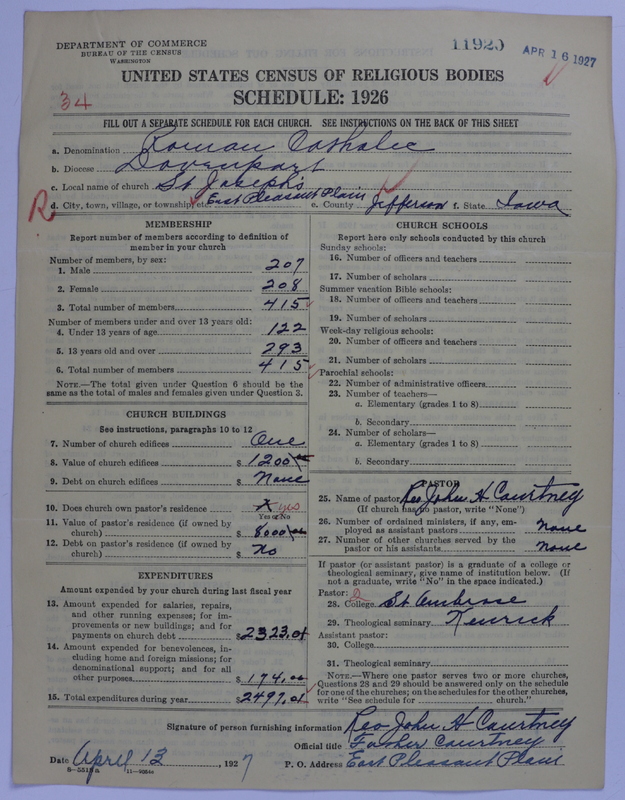 DEPARTMENT OF COMMERCE
BUREAU OF THE CENSUS
WASHINGTON
11920
APR 16 1927
UNITED STATES CENSUS OF RELIGIOUS BODIES
SCHEDULE: 1926
34
FILL OUT A SEPARATE SCHEDULE FOR EACH CHURCH. SEE INSTRUCTIONS ON THE BACK OF THIS SHEET
a. Denomination Roman Catholic
b. Diocese Davenport
c. Local name of church St Joseph's
R d. City, town, village, or township, etc. East Pleasant Plain e. County Jefferson f. State Iowa
MEMBERSHIP
Report number of members according to definition of
member in your church
Number of members, by sex:
1. Male 207
2. Female 208
3. Total number of members 415
Number of members under and over 13 years old:
4. Under 13 years of age 122
5. 13 years old and over 293
6. Total number of members 415
NOTE.—The total given under Question 6 should be the
same as the total of males and females given under Question 3.
CHURCH BUILDINGS
See instructions, paragraphs 10 to 12
7. Number of church edifices One
8. Value of church edifices $ 1200
9. Debt on church edifices $ None
10. Does church own pastor's residence yes
Yes or No
11. Value of pastor's residence (if owned by
church) $ 8000
12. Debt on pastor's residence (if owned by
church) $ No
EXPENDITURES
Amount expended by your church during last fiscal year
13. Amount expended for salaries, repairs,
and other running expenses; for im-
provements or new buildings; and for
payments on church debt $ 2323.01
14. Amount expended for benevolences, in-
cluding home and foreign missions; for
denominational support; and for all
other purposes $ 174.00
15. Total expenditures during year $ 2497.01
CHURCH SCHOOLS
Report here only schools conducted by this church
Sunday schools:
16. Number of officers and teachers
17. Number of scholars
Summer vacation Bible schools:
18. Number of officers and teachers
19. Number of scholars
Week-day religious schools:
20. Number of officers and teachers
21. Number of scholars
Parochial schools:
22. Number of administrative officers
23. Number of teachers—
a. Elementary (grades 1 to 8)
b. Secondary
24. Number of scholars—
a. Elementary (grades 1 to 8)
b. Secondary
PASTOR
25. Name of pastor Rev John H Courtney
(If church has no pastor, write "None")
26. Number of ordained ministers, if any, em-
ployed as assistant pastors None
27. Number of other churches served by the
pastor or his assistants None
If pastor (or assistant pastor) is a graduate of a college or
theological seminary, give name of institution below. (If
not a graduate, write "No" in the space indicated.)
Pastor:
28. College St Ambrose
29. Theological seminary Kenrick
Assistant pastor:
30. College
31. Theological seminary
NOTE.—Where one pastor serves two or more churches,
Questions 28 and 29 should be answered only on the schedule
for one of the churches; on the schedules for the other churches,
write "See schedule for church."
Signature of person furnishing information Rev John H Courtney
Official title Father Courtney
Date April 13, 1927 P. O. Address East Pleasant Plain
8-5518a 11-9054